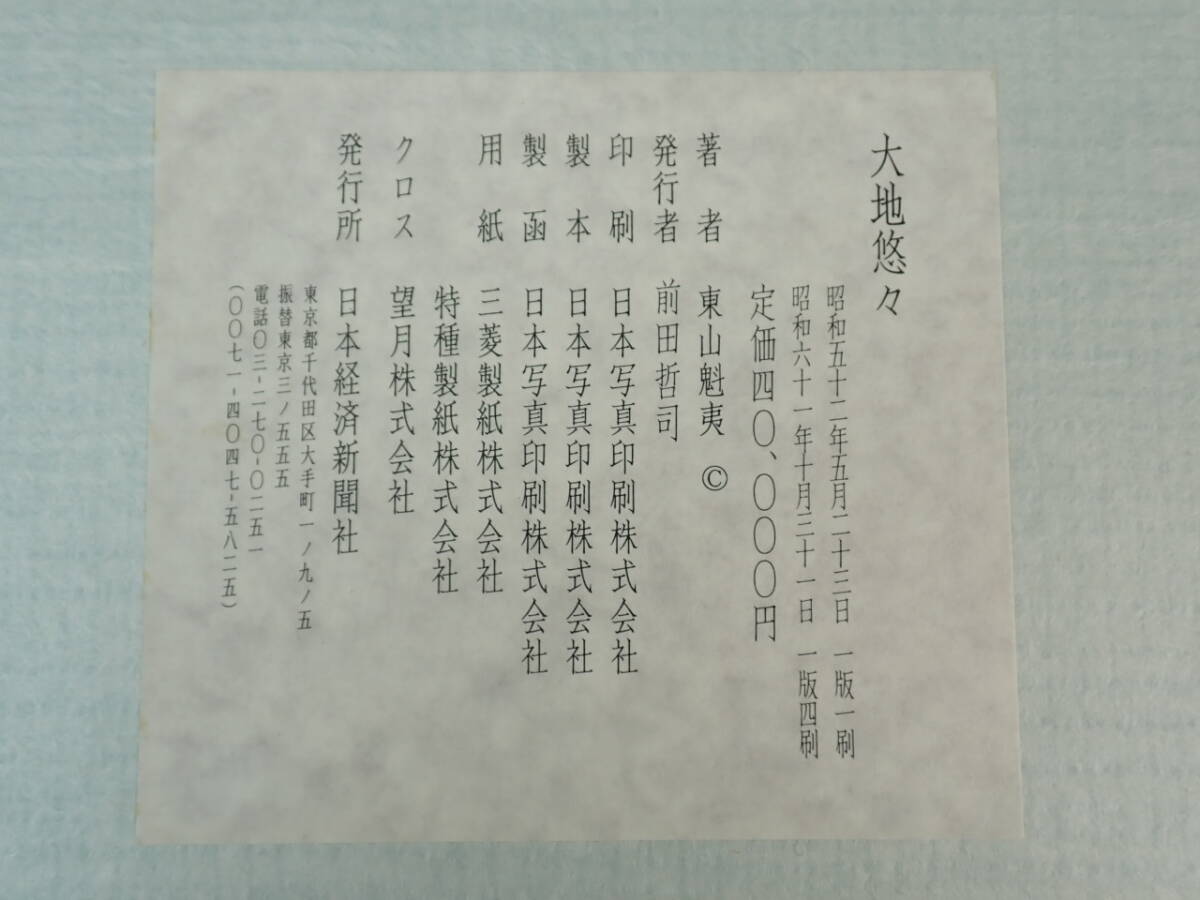 大地悠々
昭和五十二年五月二十三日 一版一刷
昭和六十一年十月三十一日 一版四刷
定価四〇、〇〇〇円
著者 東山魁夷 ©
発行者 前田哲司
印刷 日本写真印刷株式会社
製本 日本写真印刷株式会社
製函 日本写真印刷株式会社
用紙 三菱製紙株式会社
特種製紙株式会社
クロス 望月株式会社
発行所 日本経済新聞社
東京都千代田区大手町一ノ九ノ五
振替東京三ノ五五五
電話〇三-二七〇-〇二五一
(〇〇七一-四〇四七-五八二五)